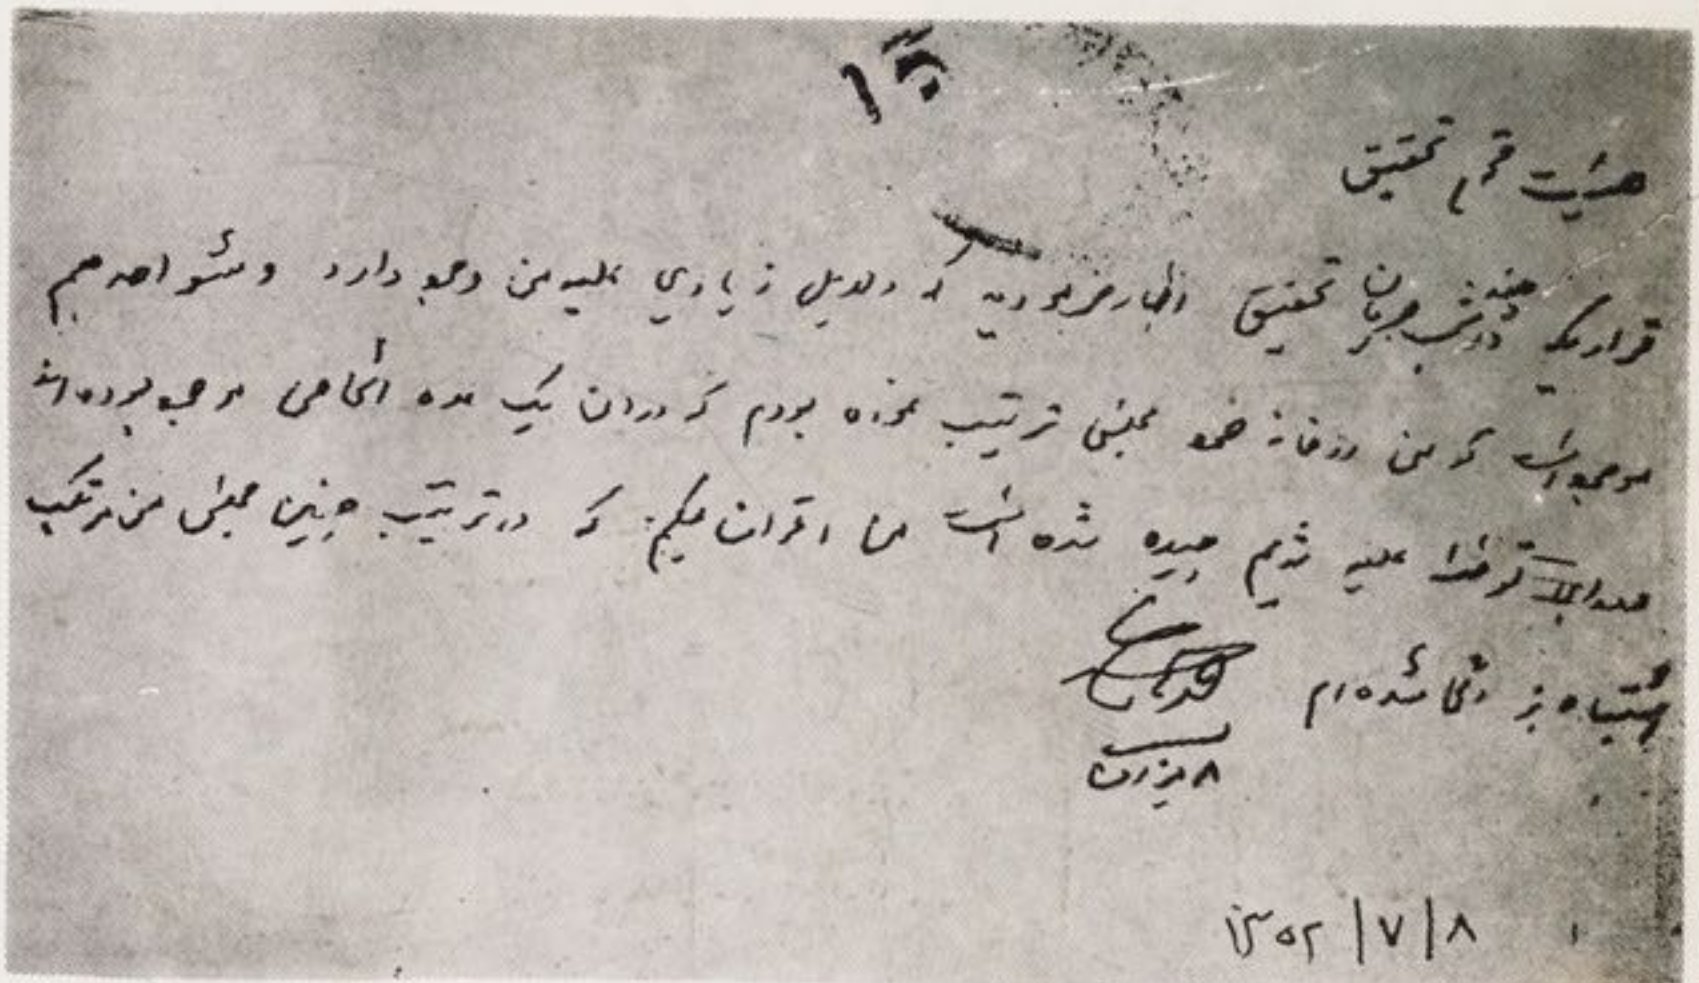 ۱۵
هیئت محترم تحقیق
قراریکه در چند شب جریان تحقیق اظهار فرمودید که دلایل زیادی علیه من وجود دارد و شواهد هم
موجود است که من در خانه خود مجلسی ترتیب نموده بودم که در آن یک عده اشخاص موجود بوده اند
و علیه رژیم چیده شده است من اقرار میکنم که در ترتیب چنین مجلس من مرتکب
اشتباه بزرگی شده ام
۸ میزان
۸ / ۷ / ۱۳۵۲